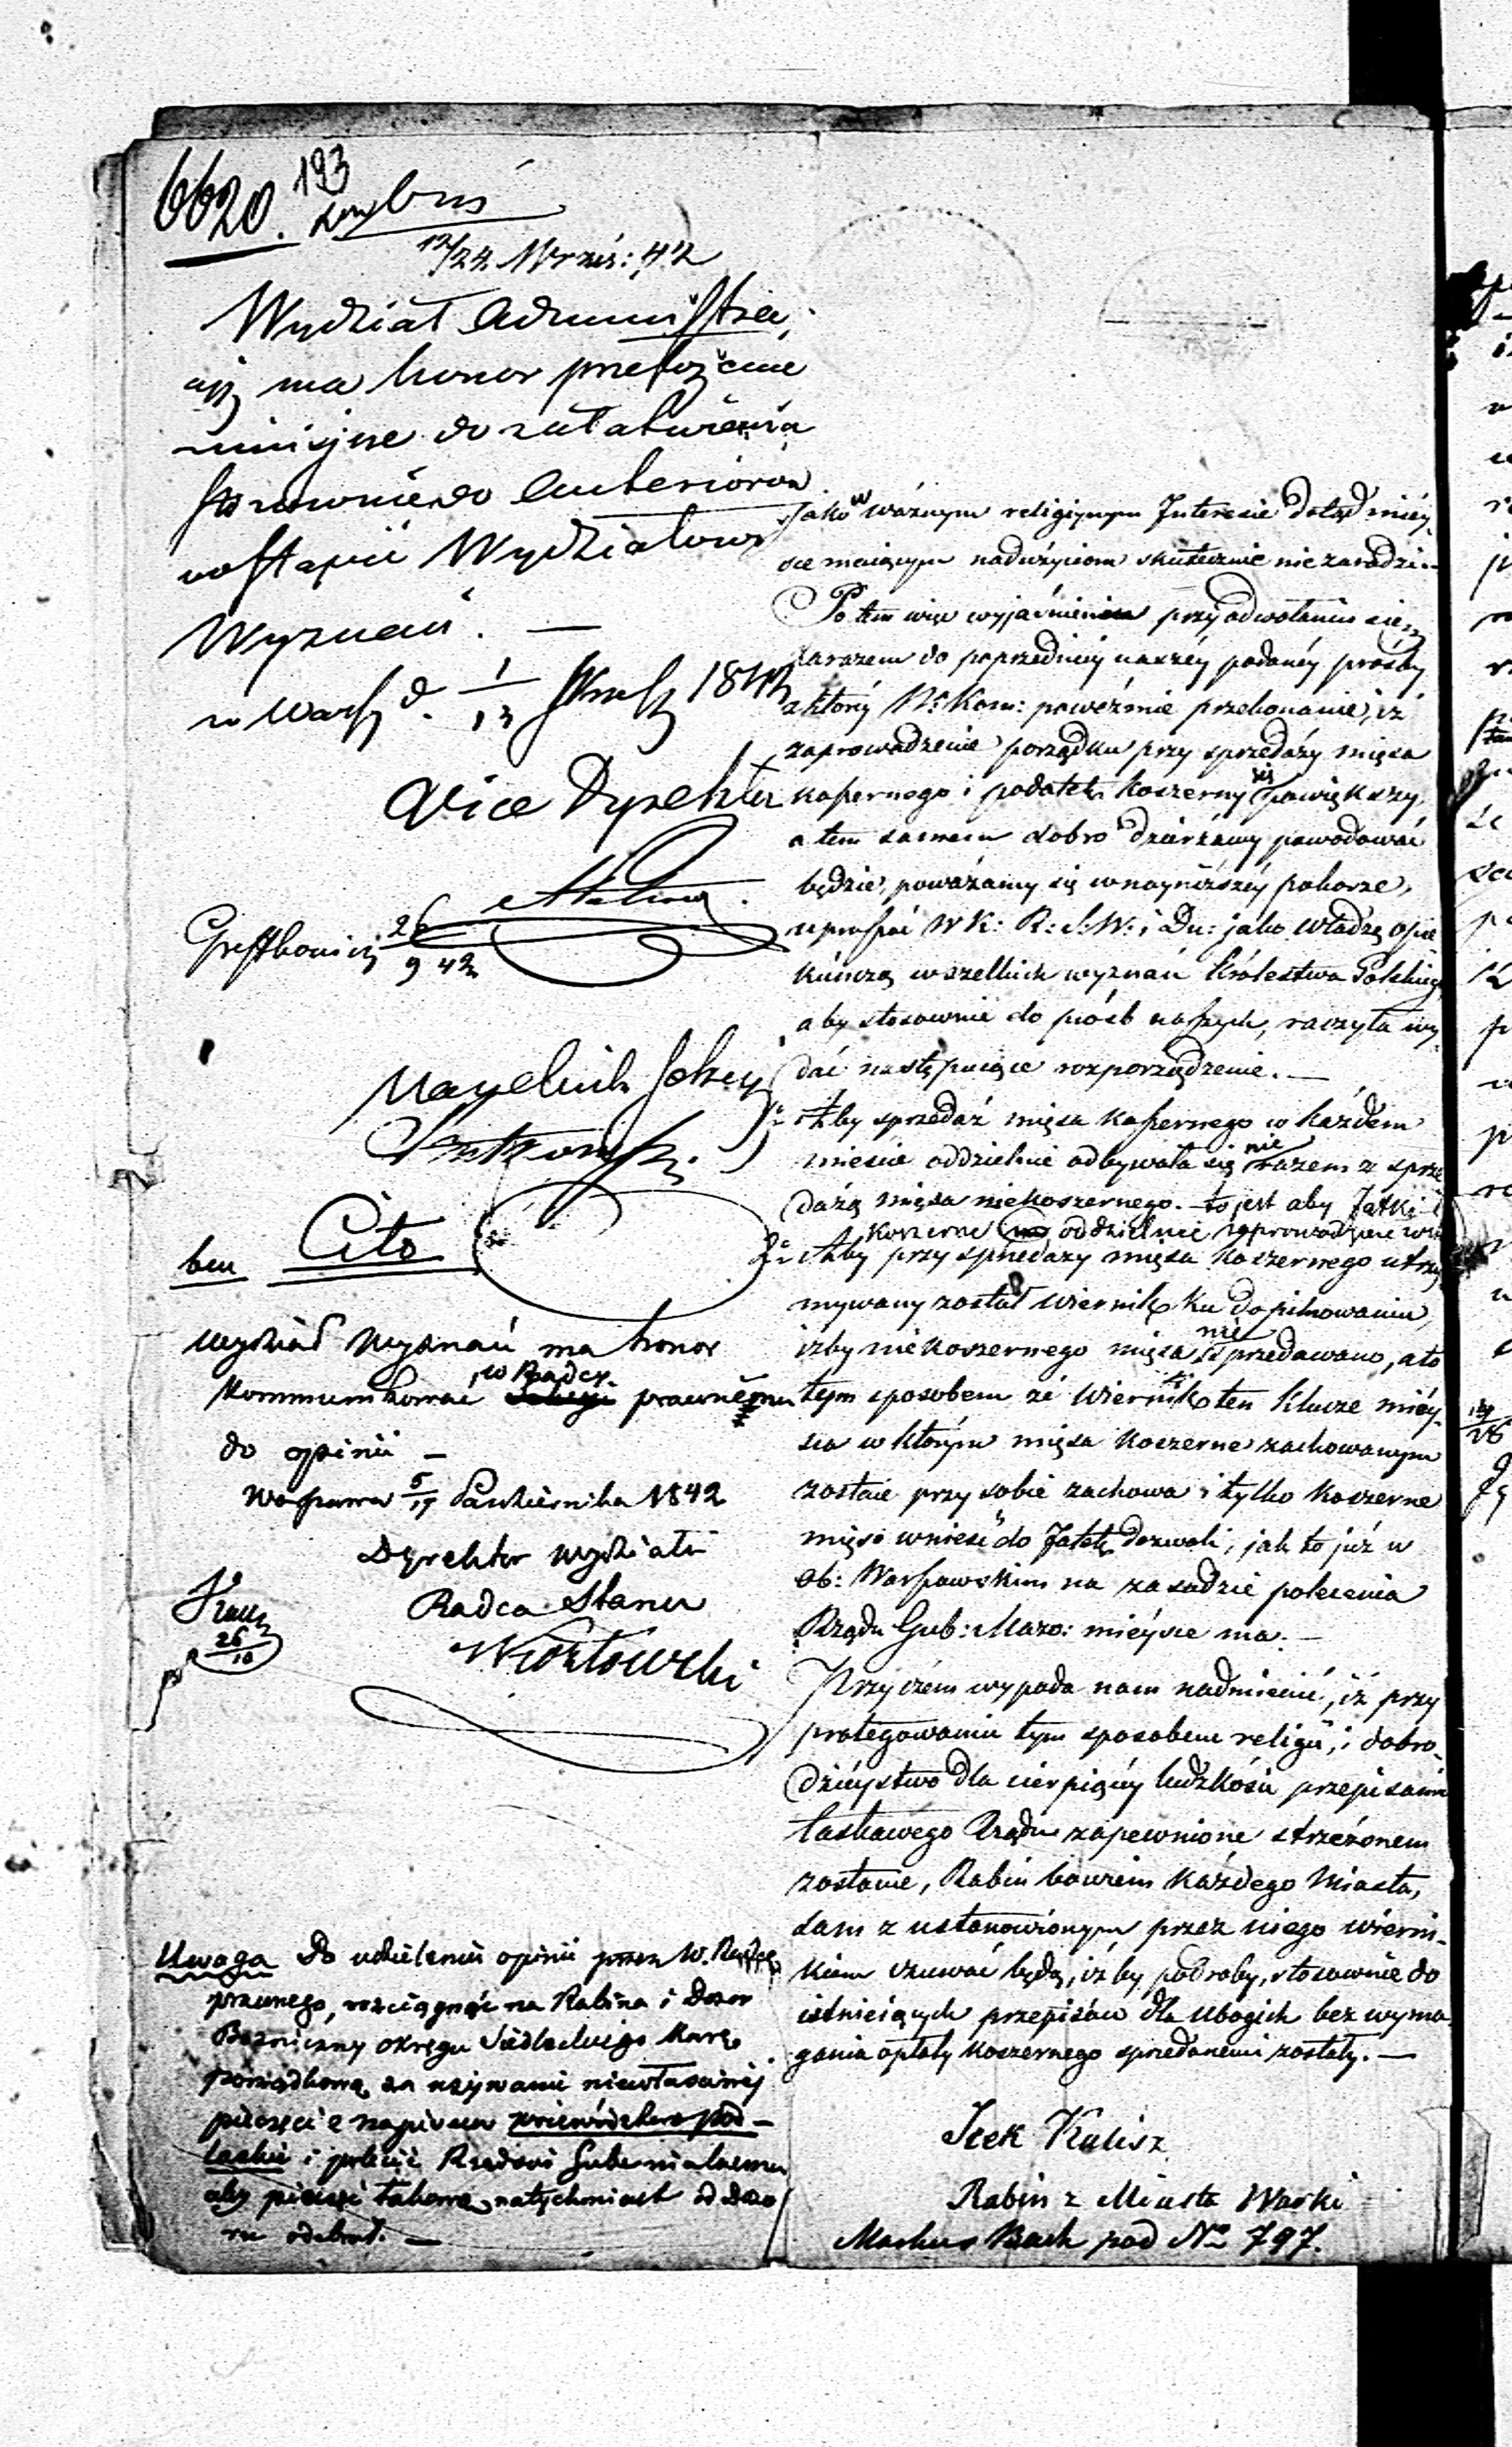 6620. 193
12/24. Wrześ: 42
Wydział Administra,
cyj ma honor przełożenie
niniejsze do załatwienia
stosownie do Anteriorów
odstąpić Wydziałowi
Wyznań. —
w Warsz d. 1/13 1842
Vice Dyrektor
26/9 42
Naczelnik Sekcyi
bm Cito
Wydział Wyznań ma honor
kommunikować W Radcy prawnemu
do opinii —
Warszawa 5/17 Października 1842
Dyrektor Wydziału
Radca Stanu
26/10
Uwaga Do udzielenia opinii przez W. Radcę
prawnego, rozciągnąć na Rabina i Dozor
Bożniczny okręgu Siedleckiego karę
porządkową za używanie niewłaściwej
pieczęci z napisem województwo pod-
laskie i polecić Rządowi Gubernialnemu
aby pieczęć takową natychmiast od Dozo
ru odebrał. —
Jako w ważnym religijnym Interesie dotąd miéy-
sce maiącym nadużyciom skutecznie nie zaradzi.—
Po tém więc wyjaśnieniu przy odwołaniu się
zarazem do poprzedniéy naszéy podanéy prośby
z któréy W: Kom: poweźmie przekonanie, iż
zaprowadzenie porządku przy sprzedaży mięsa
koszernego i podatek koszerny się powiększy
a tem samem dobro dzierżawy powodować
będzie, poważamy się w nayniższéy pokorze,
upraszać W K: R: S: W: i Du: jako władzę opie
kuńczą wszelkich wyznań Królestwa Polskiego
aby stosownie do próśb naszych, raczyła wy-
dać następuiące rozporządzenie. —
1o Aby sprzedaż mięsa koszernego w każdem
mieście oddzielnie odbywała się nie razem z sprze
dażą mięsa niekoszernego. — to jest aby Jatki
koszerne oddzielnie zaprowadzone
2o Aby przy sprzedaży mięsa koszernego utrzy
mywany został Wiernik ku dopilnowaniu,
iżby niekoszernego mięsa nie sprzedawano, a to
tym sposobem że Wiernik ten klucze miéy-
sca w którym mięsa koszerne zachowanym
zostaie przy sobie zachowa i tylko koszerne
mięso wnieść do Jatek dozwoli, jak to już w
Ob: Warszawskim na zasadzie polecenia
Rządu Gub: Mazo: miéysce ma. —
Przyczém wypada nam nadmienić, iż przy
protegowaniu tym sposobem religii, i dobro-
dzieystwo dla cierpiącéy ludzkości przepisami
łaskawego Rządu zapewnione strzeżonem
zostanie, Rabin bowiem każdego Miasta,
sam z ustanowionym przez niego wierni-
kiem czuwać będą, iż by podroby, stosownie do
istnieiących przepisów dla ubogich bez wyma
gania opłaty koszernego sprzedanemi zostały. —
Icek Kalisz
Rabin z Miasta Warki
Markus Bach pod No 797.